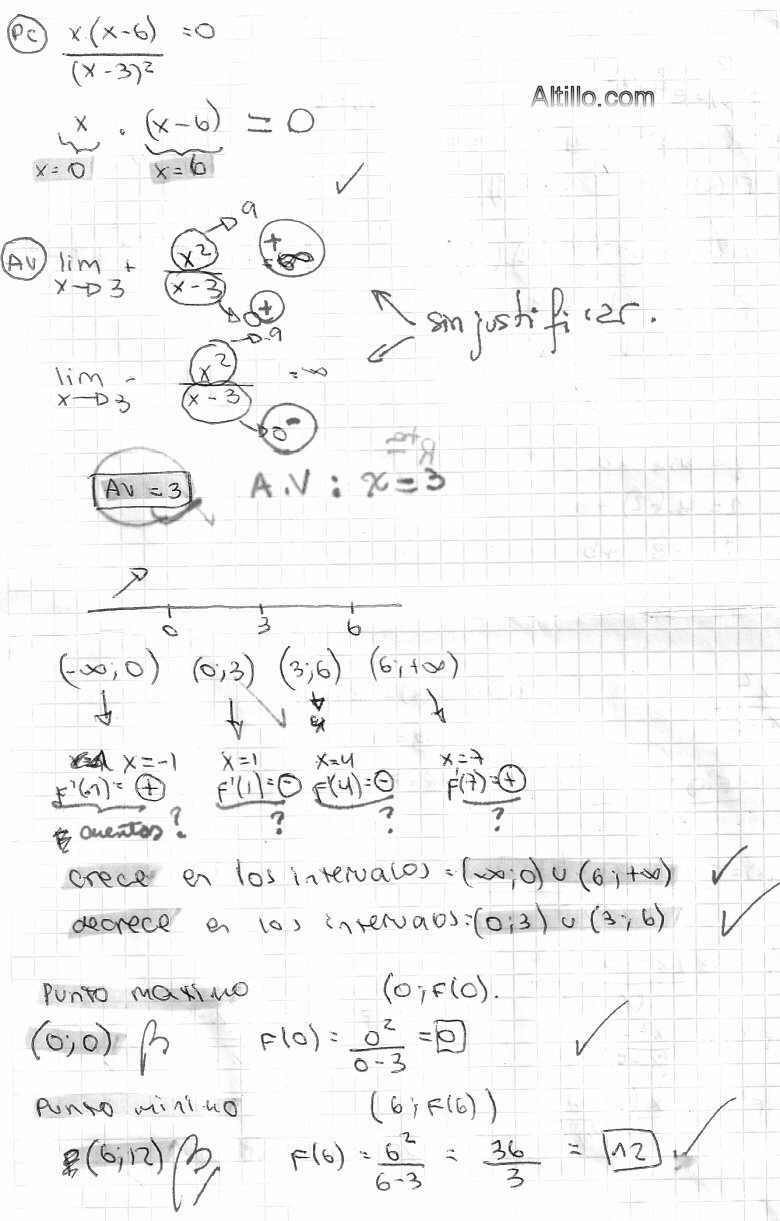 PC x.(x-6) =0
(x-3)²
Altillo.com
x . (x-6) = 0
x=0 x=6
9
AV lim + x² + =∞
x→3 x-3
0+
sin justificar.
→9
lim - x² = -∞
x→3 x-3
0-
Rta
AV = 3 A.V : x=3
0 3 6
(-∞;0) (0;3) (3;6) (6;+∞)
x=-1 x=1 x=4 x=7
F'(-1)= + F'(1)= - F'(4)= - F'(7)= +
cuentas? ? ? ?
crece en los intervalos = (-∞;0) ∪ (6;+∞)
decrece en los intervalos: (0;3) ∪ (3;6)
Punto maximo (0;F(0).
(0;0) F(0) = 0² = 0
0-3
Punto minimo (6;F(6))
(6;12) F(6) = 6² = 36 = 12
6-3 3